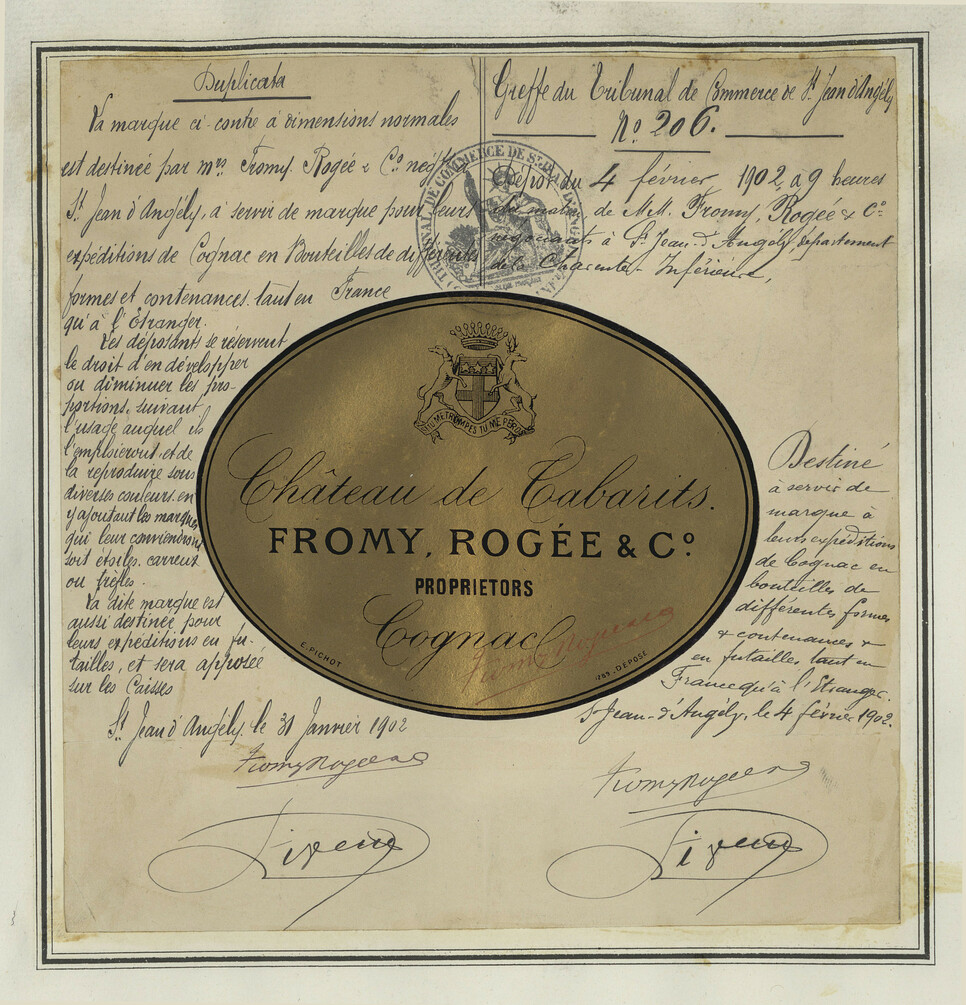 Duplicata
La marque ci-contre à dimensions normales
est destinée par Mrs Fromy, Rogée & Co negts
St Jean d'Angély, à servir de marque pour leurs
expéditions de Cognac en Bouteilles de différentes
formes et contenances tant en France
qu'à l'Etranger.
Les déposants se réservent
le droit d'en développer
ou diminuer les pro-
portions, suivant
l'usage auquel ils
l'emploieront et de
la reproduire sous
diverses couleurs en
y ajoutant les marques
qui leur conviendront
soit étoiles, carreaux
ou trèfles.
La dite marque est
aussi destinée pour
leurs expéditions en fu-
tailles, et sera apposée
sur les Caisses
St Jean d'Angély, le 31 Janvier 1902
Fromy Rogée & Co
Greffe du Tribunal de Commerce de St Jean d'Angély
No 206.
Dépôt du 4 février 1902, à 9 heures
du matin, de MM. Fromy, Rogée & Co
négociants à St Jean-d'Angély, département
de la Charente-Inférieure,
TRIBUNAL DE COMMERCE DE ST JEAN D'ANGÉLY
TU ME TROMPES TU ME PERDS
Château de Tabarits.
FROMY, ROGÉE & Co
PROPRIETORS
Cognac
Fromy Rogée & Co
E. PICHOT
DÉPOSÉ
Destiné
à servir de
marque à
leurs expéditions
de Cognac en
bouteilles de
différentes formes
& contenances &
en futailles, tant en
France qu'à l'Etranger.
St Jean-d'Angély, le 4 février 1902.
Fromy Rogée & Co